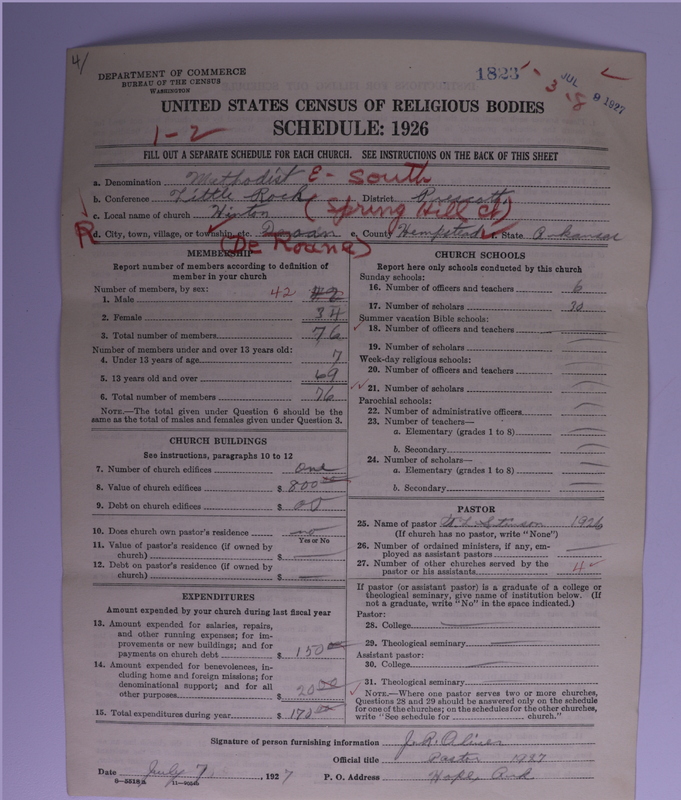 4/
DEPARTMENT OF COMMERCE
BUREAU OF THE CENSUS
WASHINGTON
1823 - 3-8
JUL 8 1927
UNITED STATES CENSUS OF RELIGIOUS BODIES
SCHEDULE: 1926
1-2
FILL OUT A SEPARATE SCHEDULE FOR EACH CHURCH. SEE INSTRUCTIONS ON THE BACK OF THIS SHEET
a. Denomination Methodist E- South
b. Conference Little Rock District Prescott
c. Local name of church Hinton (Spring Hill Ct)
R
d. City, town, village, or township, etc. e. County Hempstead f. State Arkansas
(De Roane)
MEMBERSHIP
Report number of members according to definition of
member in your church
Number of members, by sex:
1. Male 42
2. Female 34
3. Total number of members 76
Number of members under and over 13 years old:
4. Under 13 years of age 7
5. 13 years old and over 69
6. Total number of members 76
NOTE.—The total given under Question 6 should be the
same as the total of males and females given under Question 3.
CHURCH BUILDINGS
See instructions, paragraphs 10 to 12
7. Number of church edifices one
8. Value of church edifices $ 800 00
9. Debt on church edifices $ 00
10. Does church own pastor's residence no
Yes or No
11. Value of pastor's residence (if owned by
church) $
12. Debt on pastor's residence (if owned by
church) $
EXPENDITURES
Amount expended by your church during last fiscal year
13. Amount expended for salaries, repairs,
and other running expenses; for im-
provements or new buildings; and for
payments on church debt $ 150 00
14. Amount expended for benevolences, in-
cluding home and foreign missions; for
denominational support; and for all
other purposes $ 20 00
15. Total expenditures during year $ 170 00
CHURCH SCHOOLS
Report here only schools conducted by this church
Sunday schools:
16. Number of officers and teachers 6
17. Number of scholars 30
Summer vacation Bible schools:
18. Number of officers and teachers
19. Number of scholars
Week-day religious schools:
20. Number of officers and teachers
21. Number of scholars
Parochial schools:
22. Number of administrative officers
23. Number of teachers—
a. Elementary (grades 1 to 8)
b. Secondary
24. Number of scholars—
a. Elementary (grades 1 to 8)
b. Secondary
PASTOR
25. Name of pastor Stinson 1926
(If church has no pastor, write "None")
26. Number of ordained ministers, if any, em-
ployed as assistant pastors
27. Number of other churches served by the
pastor or his assistants 4
If pastor (or assistant pastor) is a graduate of a college or
theological seminary, give name of institution below. (If
not a graduate, write "No" in the space indicated.)
Pastor:
28. College
29. Theological seminary
Assistant pastor:
30. College
31. Theological seminary
NOTE.—Where one pastor serves two or more churches,
Questions 28 and 29 should be answered only on the schedule
for one of the churches; on the schedules for the other churches,
write "See schedule for church."
Signature of person furnishing information J. R.
Official title Pastor 1927
Date July 7, 1927 P. O. Address Hope, Ark